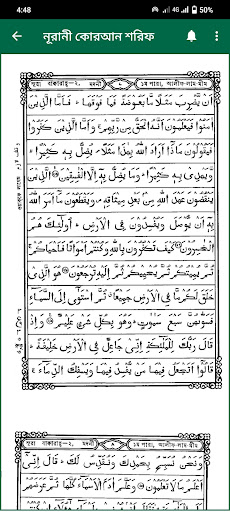 4:48
4G 50%
নূরানী কোরআন শরিফ
সুরা বাকারাহ-২, মদনী ১ম পারা, আলীফ-লাম-মীম
اَنْ يَّضْرِبَ مَثَلًا مَّا بَعُوْضَةً فَمَا فَوْقَهَا ؕ فَاَمَّا الَّذِيْنَ
اٰمَنُوْا فَيَعْلَمُوْنَ اَنَّهُ الْحَقُّ مِنْ رَّبِّهِمْ ۚ وَاَمَّا الَّذِيْنَ كَفَرُوْا
فَيَقُوْلُوْنَ مَاذَاۤ اَرَادَ اللّٰهُ بِهٰذَا مَثَلًا ۘ يُضِلُّ بِهٖ كَثِيْرًا ۙ
وَّيَهْدِيْ بِهٖ كَثِيْرًا ؕ وَمَا يُضِلُّ بِهٖۤ اِلَّا الْفٰسِقِيْنَ ۙ الَّذِيْنَ
يَنْقُضُوْنَ عَهْدَ اللّٰهِ مِنْۢ بَعْدِ مِيْثَاقِهٖ ۪ وَيَقْطَعُوْنَ مَاۤ اَمَرَ اللّٰهُ
بِهٖۤ اَنْ يُّوْصَلَ وَيُفْسِدُوْنَ فِى الْاَرْضِ ؕ اُولٰٓئِكَ هُمُ
الْخٰسِرُوْنَ كَيْفَ تَكْفُرُوْنَ بِاللّٰهِ وَكُنْتُمْ اَمْوَاتًا فَاَحْيَاكُمْ ۚ
ثُمَّ يُمِيْتُكُمْ ثُمَّ يُحْيِيْكُمْ ثُمَّ اِلَيْهِ تُرْجَعُوْنَ هُوَ الَّذِيْ
خَلَقَ لَكُمْ مَّا فِى الْاَرْضِ جَمِيْعًا ۗ ثُمَّ اسْتَوٰۤى اِلَى السَّمَآءِ
فَسَوّٰىهُنَّ سَبْعَ سَمٰوٰتٍ ؕ وَهُوَ بِكُلِّ شَيْءٍ عَلِيْمٌ وَاِذْ
قَالَ رَبُّكَ لِلْمَلٰٓئِكَةِ اِنِّيْ جَاعِلٌ فِى الْاَرْضِ خَلِيْفَةً ؕ
قَالُوْۤا اَتَجْعَلُ فِيْهَا مَنْ يُّفْسِدُ فِيْهَا وَيَسْفِكُ الدِّمَآءَ ۚ
সুরা বাকারাহ-২, মদনী ১ম পারা, আলীফ-লাম-মীম
وَنَحْنُ نُسَبِّحُ بِحَمْدِكَ وَنُقَدِّسُ لَكَ ؕ قَالَ اِنِّيْۤ
اَعْلَمُ مَا لَا تَعْلَمُوْنَ وَعَلَّمَ اٰدَمَ الْاَسْمَآءَ كُلَّهَا ثُمَّ عَرَضَهُمْ